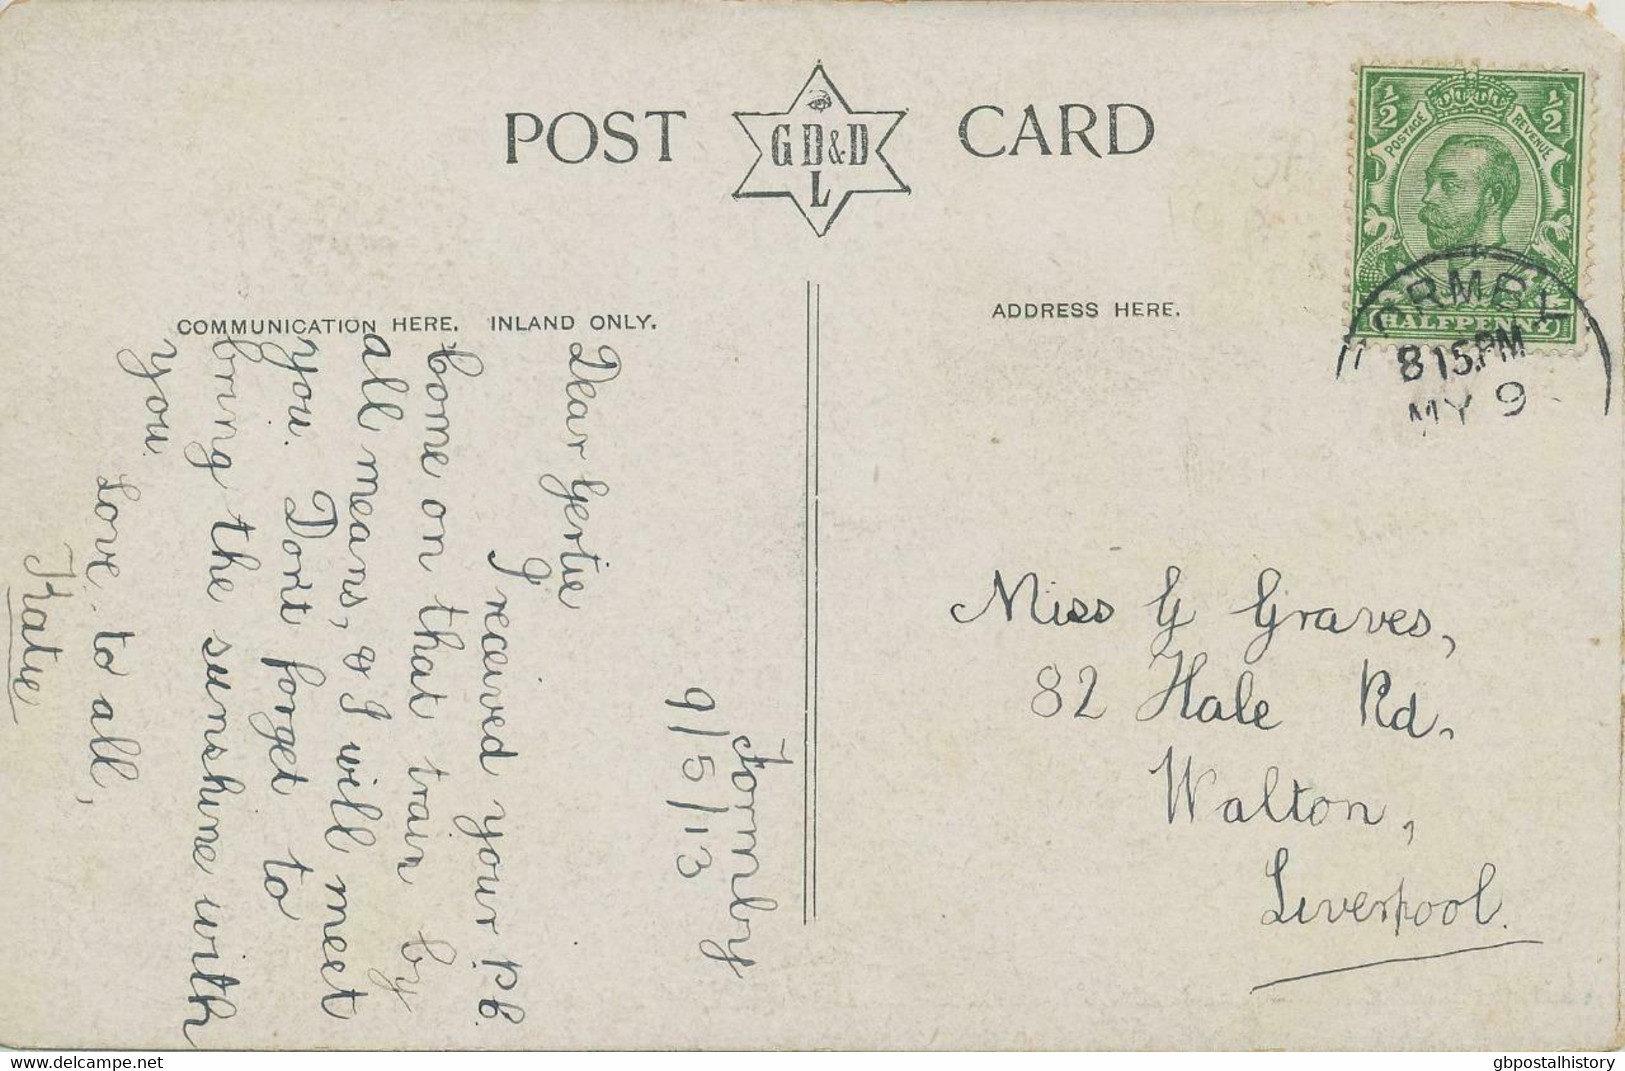 POST CARD
G D & D
L
COMMUNICATION HERE. INLAND ONLY.
ADDRESS HERE.
½ ½
POSTAGE REVENUE
HALFPENNY
FORMBY
8 15 PM
MY 9
Formby
9/5/13
Dear Gertie
I received your P.C.
Come on that train by
all means, & I will meet
you. Dont forget to
bring the sunshine with
you.
Love to all,
Katie
Miss G Graves,
82 Hale Rd.
Walton,
Liverpool.
the-saleroom.com